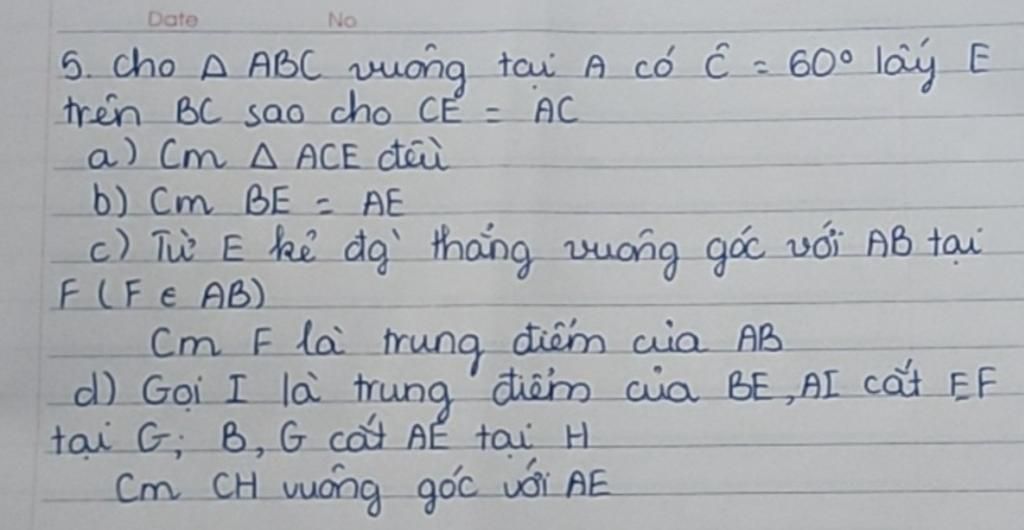 Date No
5. Cho Δ ABC vuông tại A có Ĉ = 60° lấy E
trên BC sao cho CE = AC
a) Cm Δ ACE đều
b) Cm BE = AE
c) Từ E kẻ đg` thẳng vuông góc với AB tại
F (F ∈ AB)
Cm F là trung điểm của AB
d) Gọi I là trung điểm của BE, AI cắt EF
tại G; B, G cắt AE tại H
Cm CH vuông góc với AE